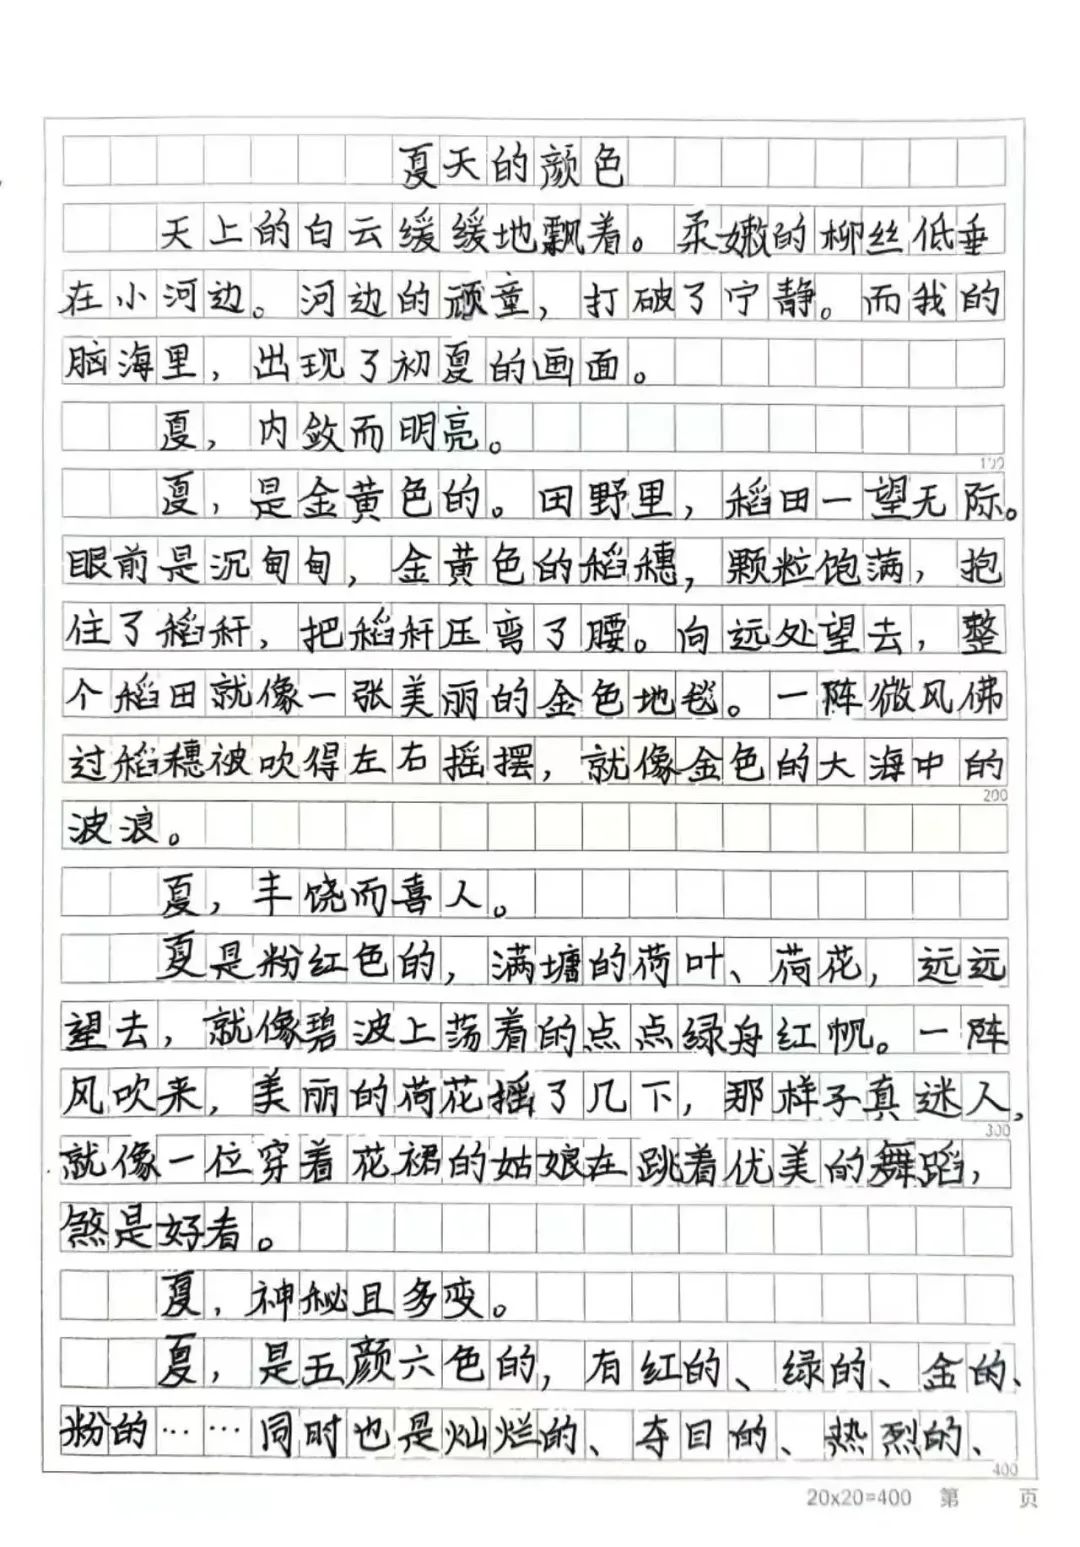 夏天的颜色
天上的白云缓缓地飘着。柔嫩的柳丝低垂
在小河边。河边的顽童，打破了宁静。而我的
脑海里，出现了初夏的画面。
夏，内敛而明亮。
100
夏，是金黄色的。田野里，稻田一望无际。
眼前是沉甸甸，金黄色的稻穗，颗粒饱满，抱
住了稻秆，把稻秆压弯了腰。向远处望去，整
个稻田就像一张美丽的金色地毯。一阵微风佛
过稻穗被吹得左右摇摆，就像金色的大海中的
200
波浪。
夏，丰饶而喜人。
夏是粉红色的，满塘的荷叶、荷花，远远
望去，就像碧波上荡着的点点绿舟红帆。一阵
风吹来，美丽的荷花摇了几下，那样子真迷人，
300
就像一位穿着花裙的姑娘在跳着优美的舞蹈，
煞是好看。
夏，神秘且多变。
夏，是五颜六色的，有红的、绿的、金的、
粉的……同时也是灿烂的、夺目的、热烈的、
400
20x20=400 第 页